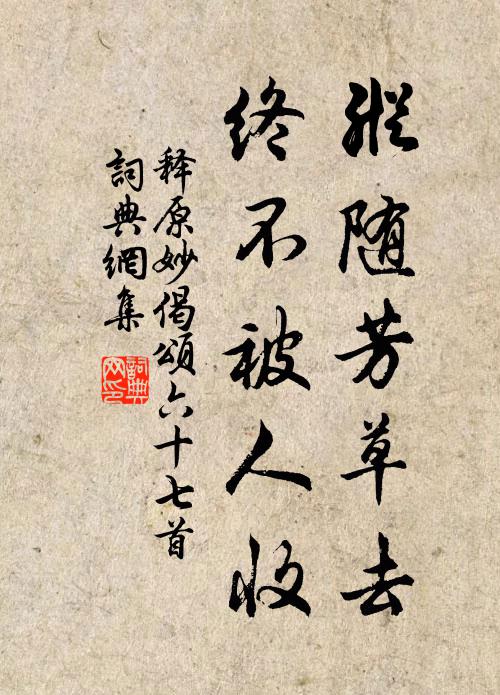 縱随芳草去
終不被人收
释原妙偈頌六十七首
詞典網集
詞典網印